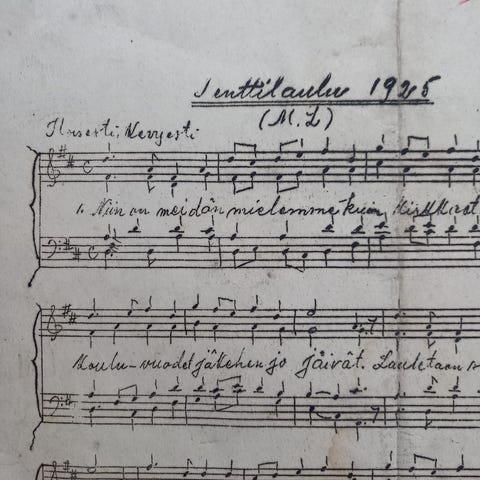 Penttilaulu 1925
(M.L)
Iloisesti, Kevyesti
1. Niin on meidän mielemme kuin kirkkaat
Koulu-vuodet jäkehen jo jäivät. Lauletaan